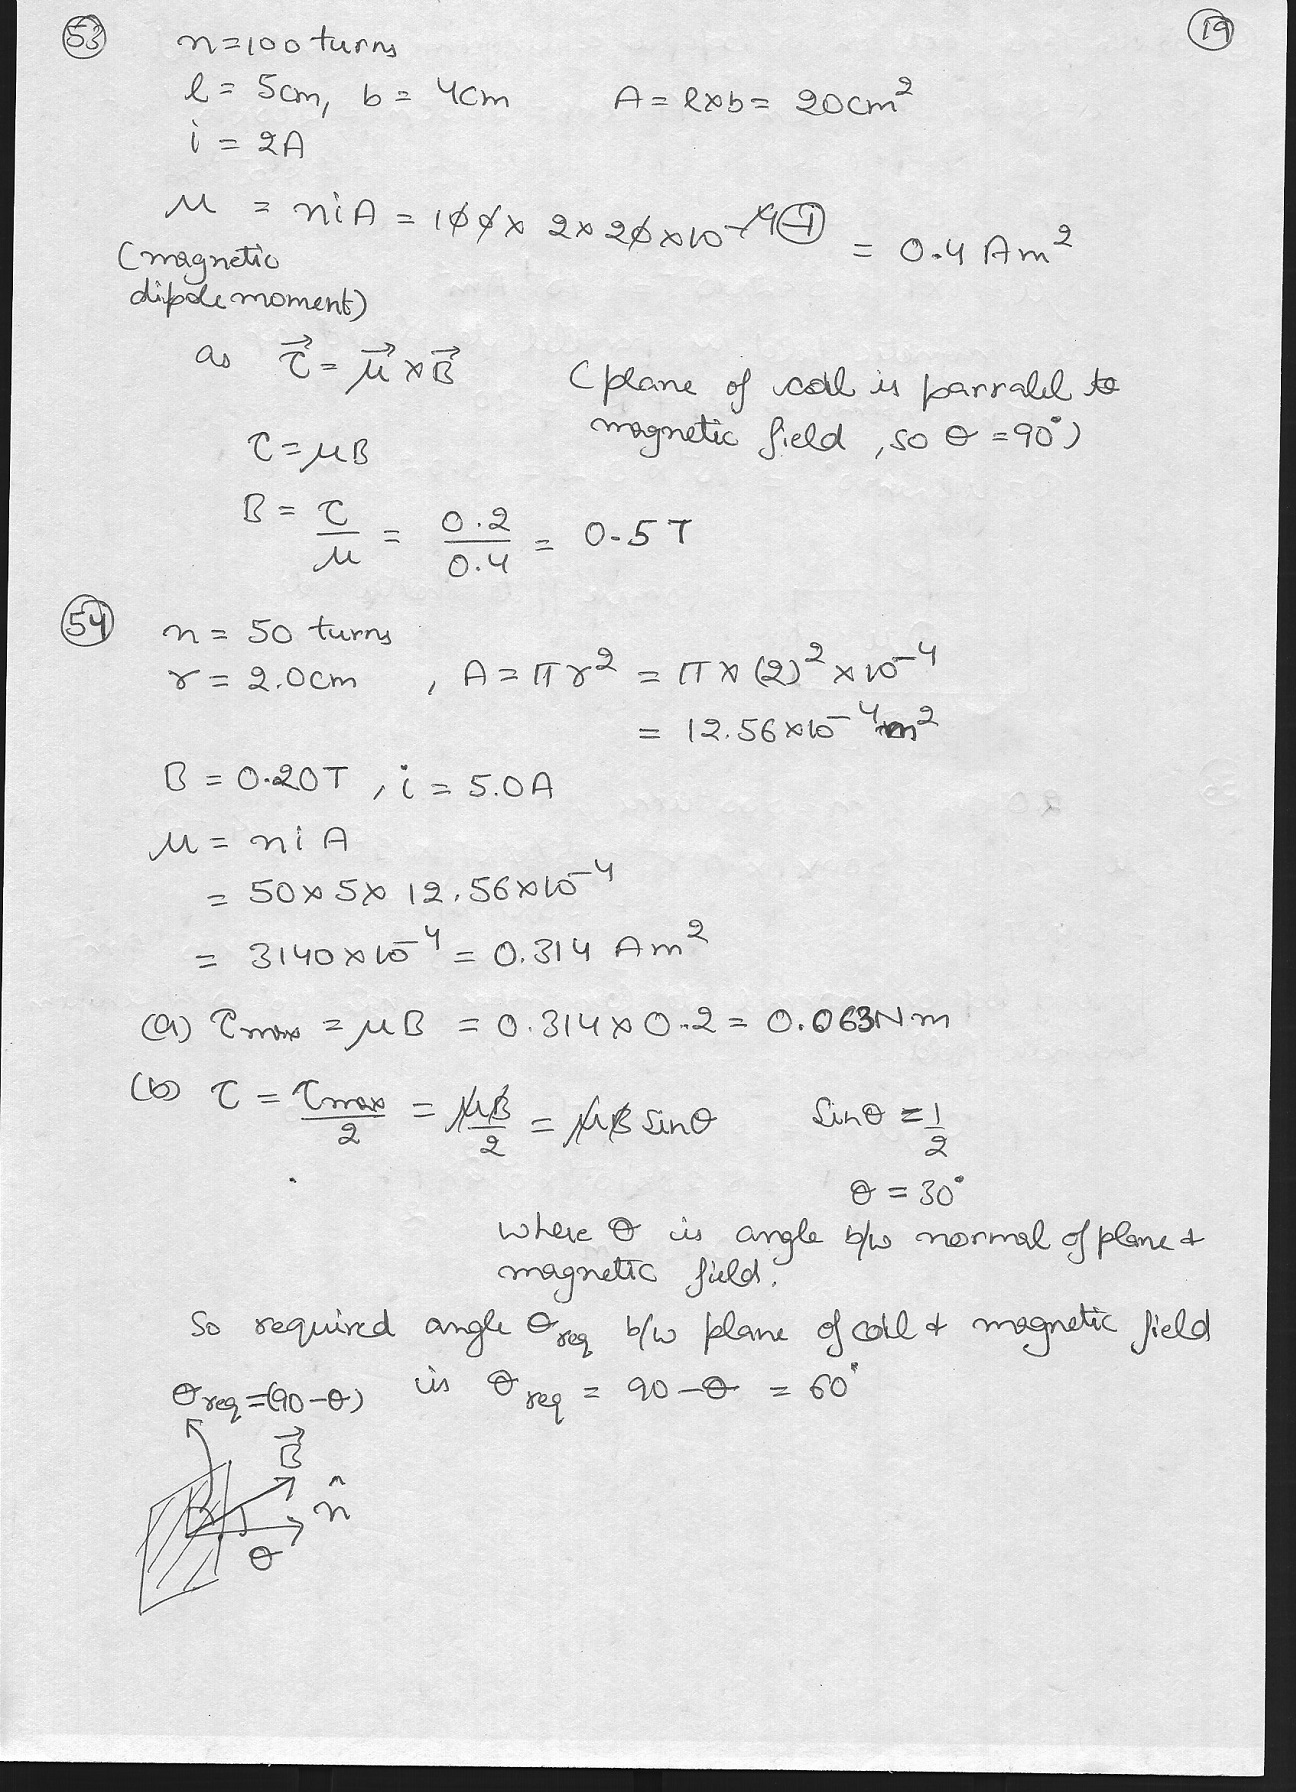 53
19
n = 100 turns
l = 5cm, b = 4cm A = l×b = 20cm²
i = 2A
μ = niA = 100 × 2 × 20 × 10⁻⁴ ⁻¹ = 0.4 Am²
(magnetic
dipole moment)
as τ⃗ = μ⃗ × B⃗ (plane of coil is parralel to
magnetic field, so θ = 90°)
τ = μB
B = τ/μ = 0.2/0.4 = 0.5 T
54
n = 50 turns
r = 2.0cm , A = πr² = π × (2)² × 10⁻⁴
= 12.56 × 10⁻⁴ m²
B = 0.20T , i = 5.0A
μ = niA
= 50 × 5 × 12.56 × 10⁻⁴
= 3140 × 10⁻⁴ = 0.314 Am²
(a) τmax = μB = 0.314 × 0.2 = 0.063Nm
(b) τ = τmax/2 = μB/2 = μB sinθ sinθ = 1/2
θ = 30°
where θ is angle b/w normal of plane &
magnetic field.
So required angle θreq b/w plane of coil & magnetic field
is θreq = 90 - θ = 60°
θreq = (90 - θ)
B⃗
n̂
θ